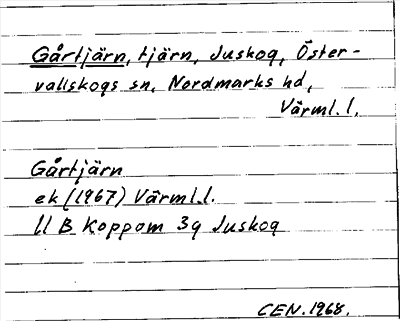 Gårtjärn, tjärn, Juskog, Öster-
vallskogs sn, Nordmarks hd,
Värml. l.
Gårtjärn
ek (1967) Värml.l.
11 B Koppom 3g Juskog
CEN. 1968.